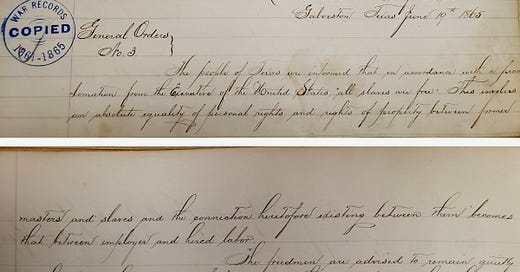 WAR RECORDS
COPIED
1861-1865
Galveston Texas June 19th 1865.
General Orders }
No. 3
The people of Texas are informed that in accordance with a proc
lamation from the Executive of the United States, "all slaves are free." This involves
an absolute equality of personal rights and rights of property between former
masters and slaves and the connection heretofore existing between them becomes
that between employer and hired labor.
The freedmen are advised to remain quietly